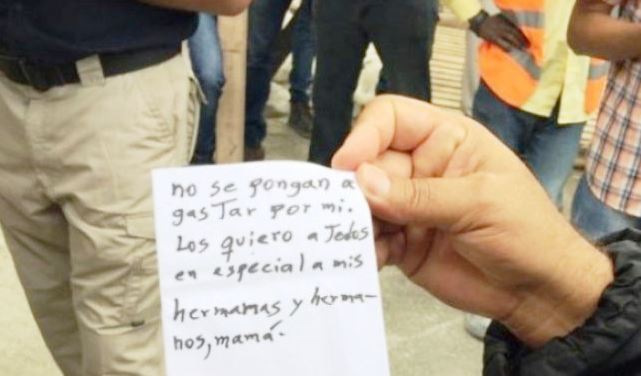 no se pongan a
gasTar por mi.
Los quiero a Todos
en especial a mis
hermamas y herma-
nos, mamá.